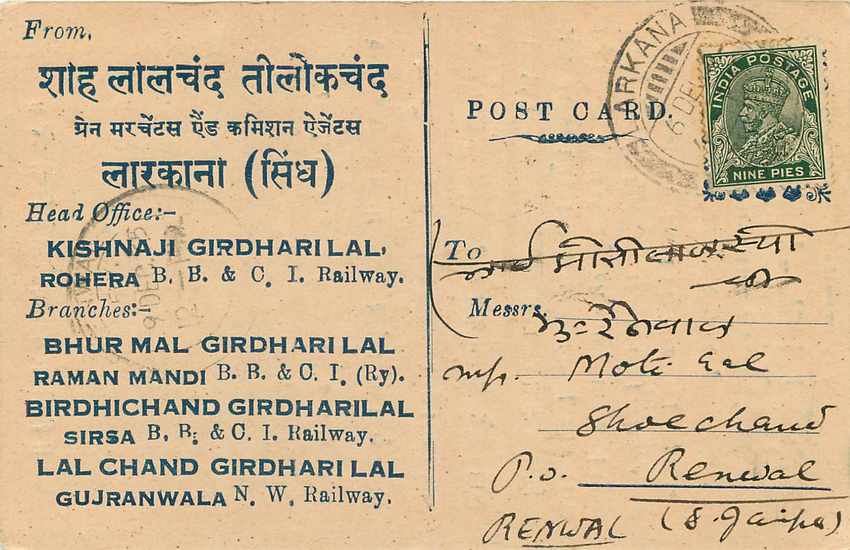 From,
शाह लालचंद तीलोकचंद
ग्रेन मरचेंटस ऐंड कमिशन ऐजेंटस
लारकाना (सिंध)
Head Office:-
KISHNAJI GIRDHARILAL,
ROHERA B. B. & C. I. Railway.
Branches:-
BHUR MAL GIRDHARILAL
RAMAN MANDI B. B. & C. I. (Ry).
BIRDHICHAND GIRDHARILAL
SIRSA B. B. & C. I. Railway.
LAL CHAND GIRDHARILAL
GUJRANWALA N. W. Railway.
POST CARD.
LARKANA
6 DE
INDIA POSTAGE
NINE PIES
To
Messrs
M/s. Moti Lal
Sheochand
P.o. Renwal
RENWAL (S. Jaipur)